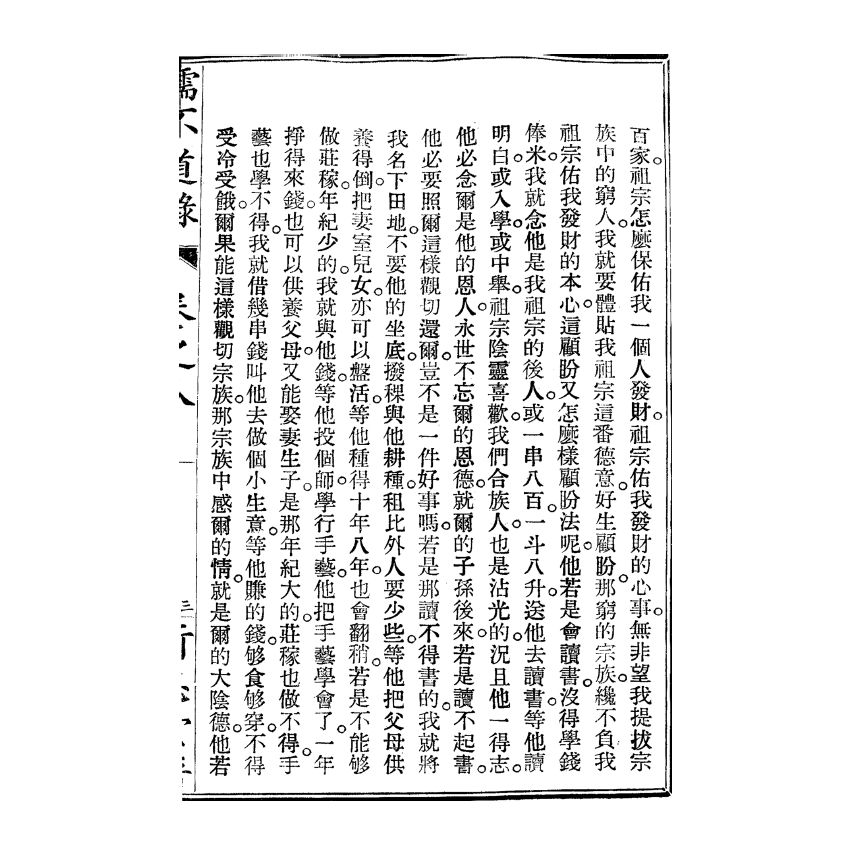 百家祖宗。怎麼保佑我一個人發財。祖宗佑我發財的心事。無非望我提拔宗
族中的窮人。我就要體貼我祖宗這番德意。好生顧盼。那窮的宗族。纔不負我
祖宗佑我發財的本心。這顧盼又怎麼樣顧盼法呢。他若是會讀書。沒得學錢
俸米。我就念他是我祖宗的後人。或一串八百。一斗八升。送他去讀書。等他讀
明白。或入學。或中舉。祖宗陰靈喜歡。我們合族人。也是沾光的。況且他一得志。
他必念爾是他的恩人。永世不忘爾的恩德。就爾的子孫後來。若是讀不起書。
他必要照爾這樣觀切還爾。豈不是一件好事嗎。若是那讀不得書的。我就將
我名下田地。不要他的坐底。撥稞與他耕種。租比外人要少些。等他把父母供
養得倒。把妻室兒女。亦可以盤活。等他種得十年八年。也會翻稍。若是不能够
做莊稼。年紀少的。我就與他錢等他投個師。學行手藝。他把手藝學會了。一年
掙得來錢。也可以供養父母。又能娶妻生子。是那年紀大的。莊稼也做不得。手
藝也學不得。我就借幾串錢。叫他去做個小生意。等他賺的錢。够食够穿。不得
受冷受餓。爾果能這樣觀切宗族。那宗族中感爾的情。就是爾的大陰德。他若
道錄